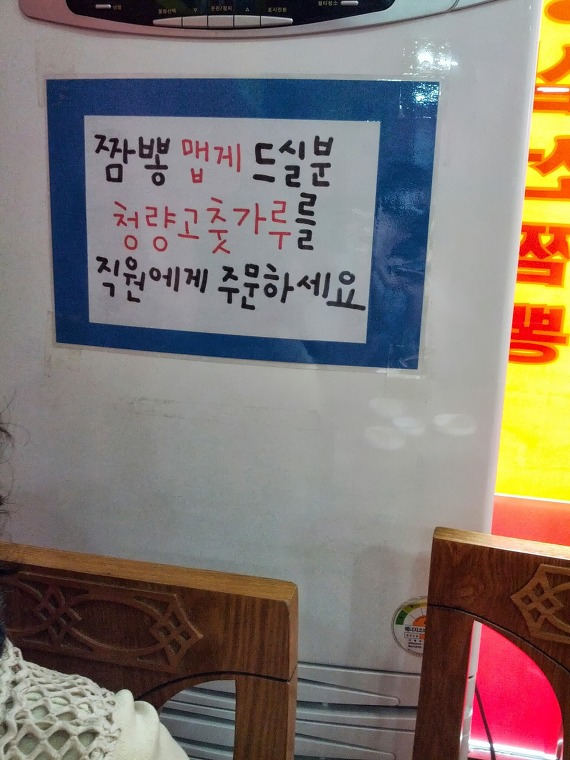 짬뽕 맵게 드실분
청량고춧가루를
직원에게 주문하세요
짬
뽕